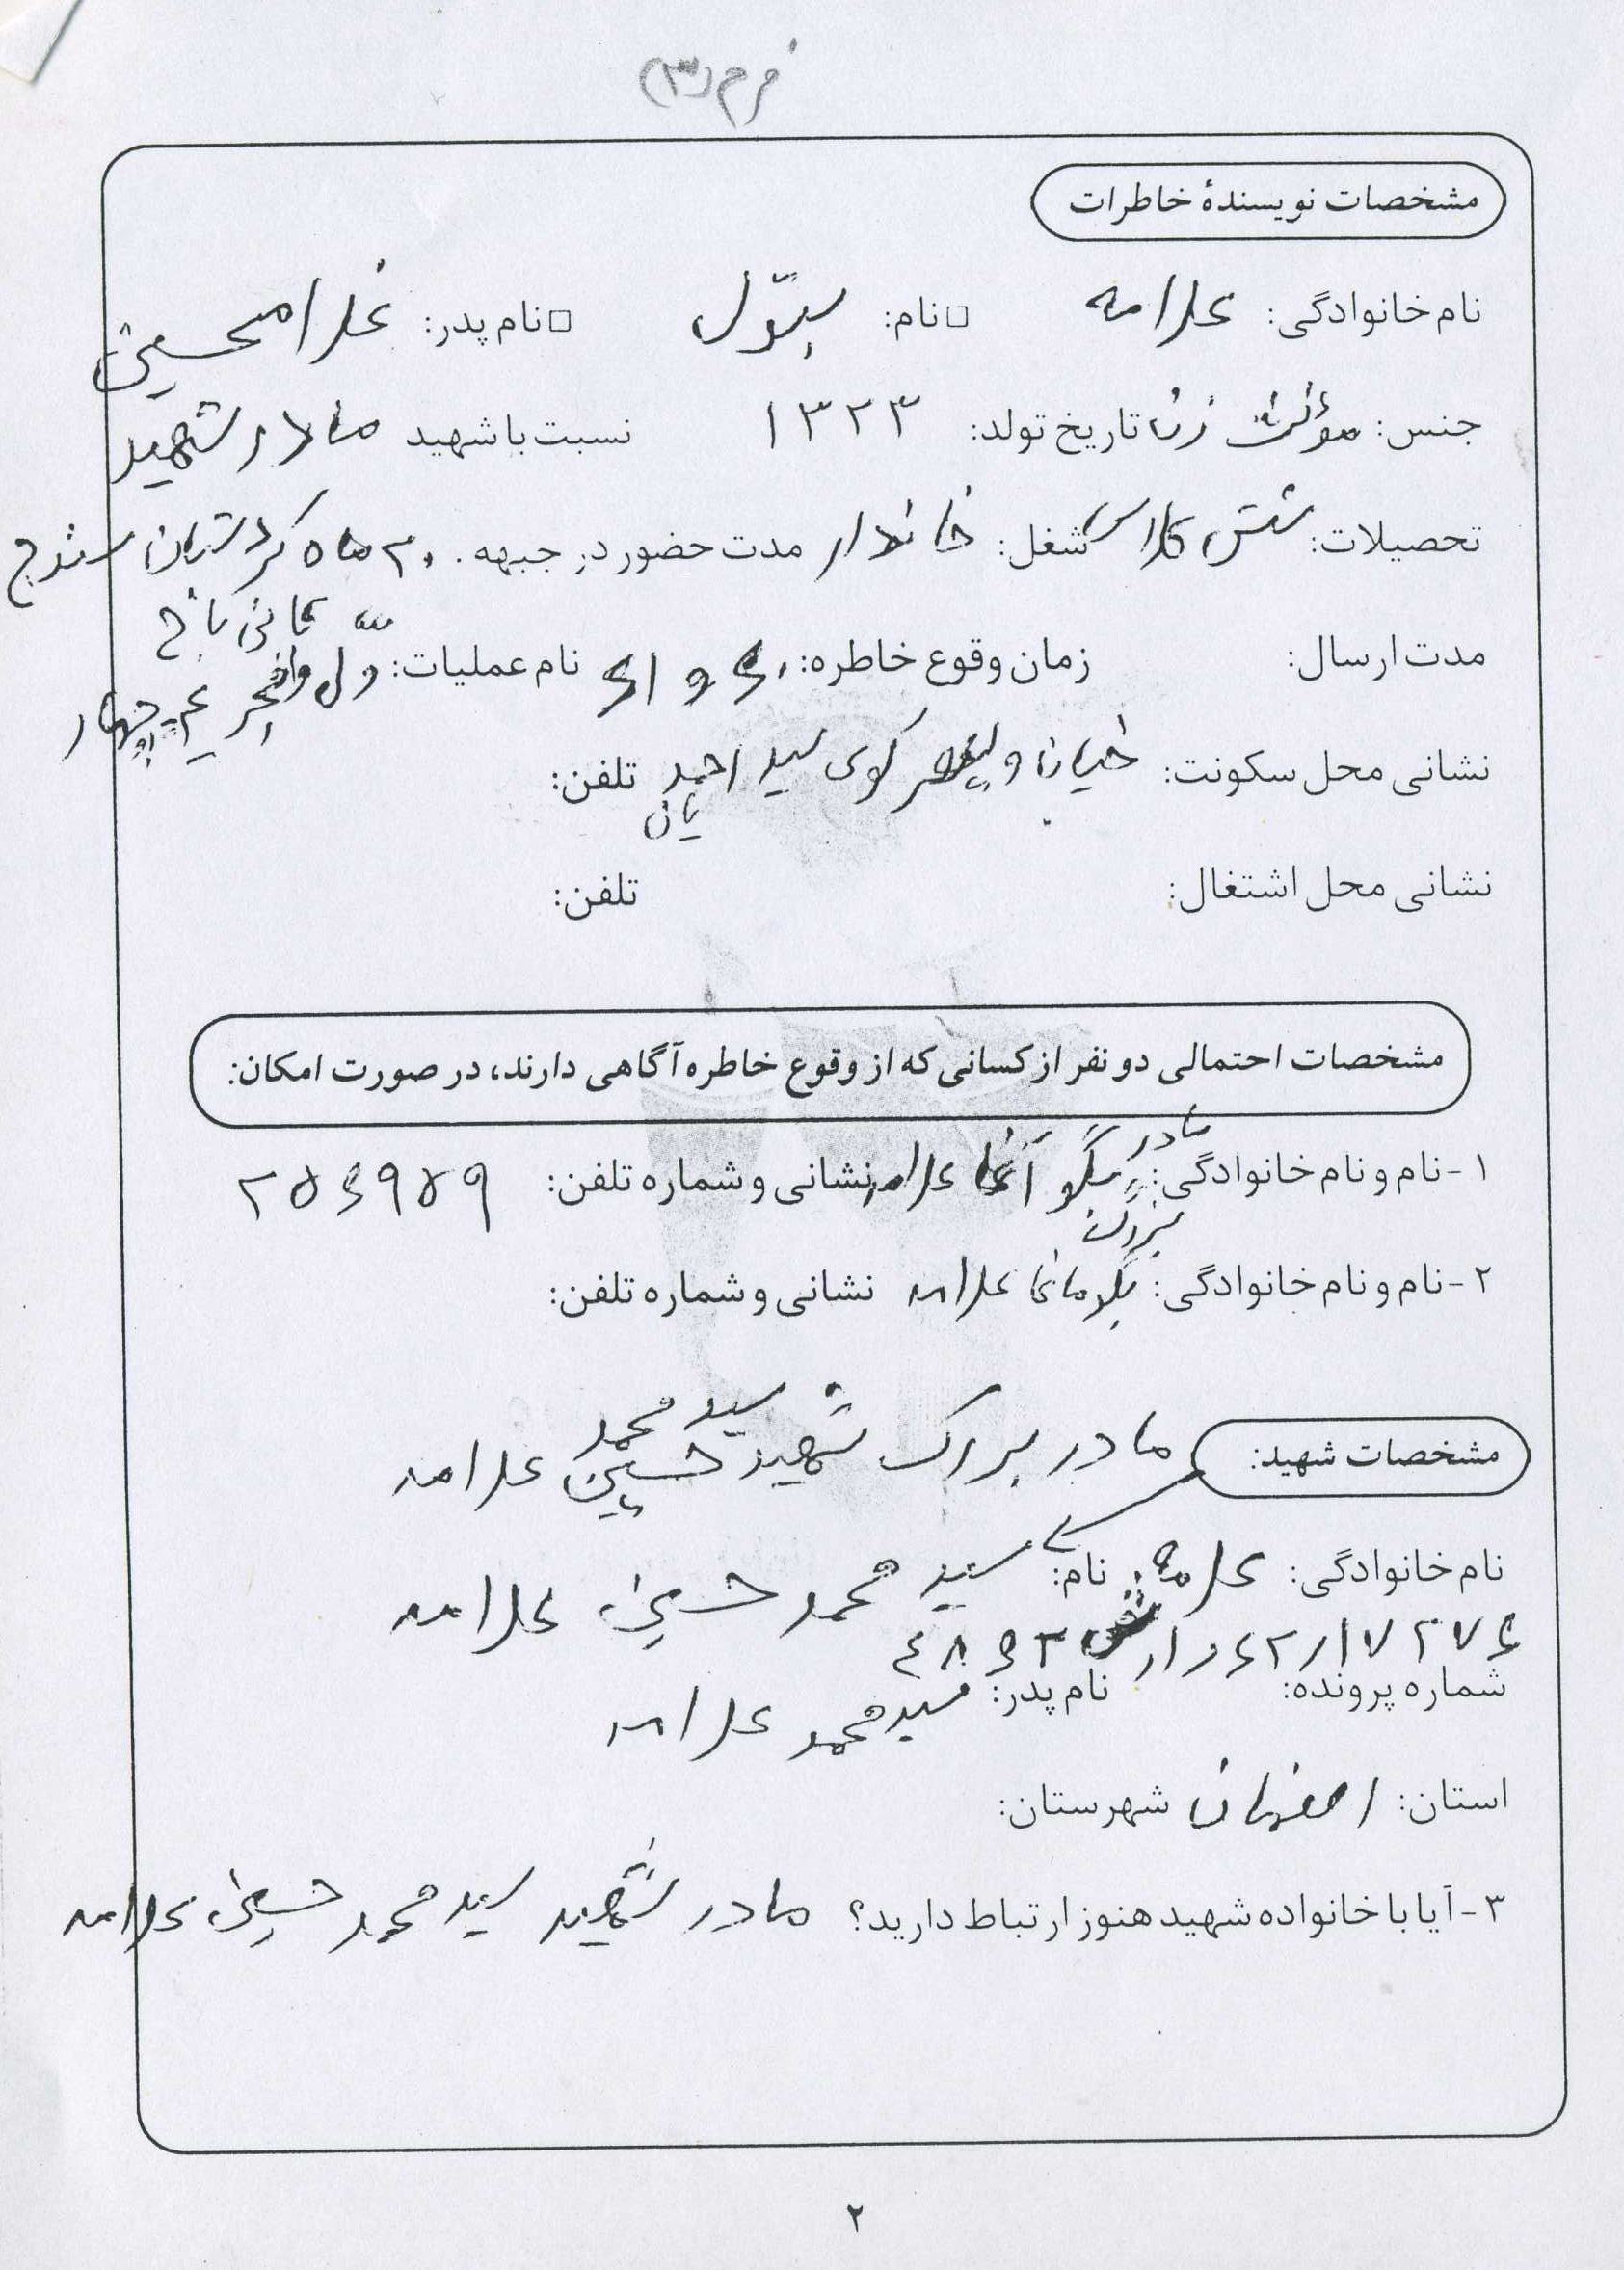 فرم (۳)
مشخصات نویسندهٔ خاطرات
نام خانوادگی: علامه □ نام: بتول □ نام پدر: غلامحسین
جنس: مؤنث زن تاریخ تولد: ۱۳۲۳ نسبت با شهید مادر شهید
تحصیلات: شش کلاس شغل: خانه‌دار مدت حضور در جبهه: ۲۰ ماه کردستان سنندج
مدت ارسال: زمان وقوع خاطره: ۶۰ و ۶۱ نام عملیات: والفجر چهار
نشانی محل سکونت: خیابان ولیعصر کوی سید احمدیان تلفن:
نشانی محل اشتغال: تلفن:
مشخصات احتمالی دو نفر از کسانی که از وقوع خاطره آگاهی دارند، در صورت امکان:
۱- نام و نام خانوادگی: مادر بزرگ آغا علامه نشانی و شماره تلفن: ۲۵۶۹۵۹
۲- نام و نام خانوادگی: علامه نشانی و شماره تلفن:
مشخصات شهید: مادر بزرگ شهید سید محمد حسین علامه
نام خانوادگی: علامه نام: سید محمد حسین علامه
شماره پرونده: نام پدر: سید محمد علامه
استان: اصفهان شهرستان:
۳- آیا با خانواده شهید هنوز ارتباط دارید؟ مادر شهید سید محمد حسین علامه
۲